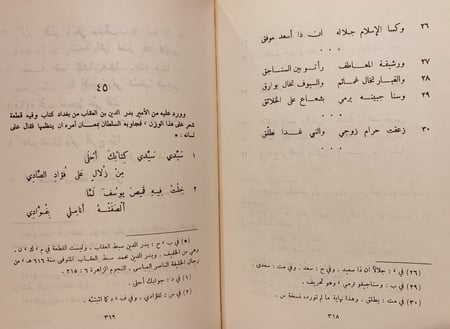 ٣٦ وكسا الإسلام جلاله ان ذا أسعد موفق
• • •
٢٧ ورشيقة المعاطف رأتو بين السناجق
٢٨ والغبار تخال غمائم والسيوف تخال بوارق
٢٩ وسنا جبينه يرمي بشعاع على الخلائق
• • •
٣٠ زعقت حرام زوجي والتي غدا نطلق
(٢٦) في د : جلالاً ان ذا سعيد . وفي ح : سعد . وفي مت : سعدى .
(٢٩) في ب : وسناجيقو ترمي ، وهو تحريف .
(٣٠) في مت : يطلق . وهذا نهاية ما تورده نسخة س .
٣١٨
٤٥
وورد عليه من الأمير بدر الدين بن العقاب من بغداد كتاب وفيه قطعة
شعر على هذا الوزن * فجاوبه السلطان بمعان أمره ان ينظمها فقال على
لسانه * :
١ سَيِّدي سَيِّدي كِتابكَ أَحْلى
مِنْ زُلالٍ عَلى فُؤادِ الصَّادِي
٢ خِلْتُ فيهِ قَميصَ يوسُفَ لَمَّا
أَلْصَقَتْهُ أَنامِلي بِفُؤادِي
(*) في ب ، ح : بدر الدين سبط العقاب . وليست القطعة في م ، ك ، ن .
وهي من الخفيف . وبدر الدين محمد سبط العقاب المتوفى سنة ٦١٦ هـ ، من
رجال الخليفة الناصر العباسي . النجوم الزاهرة ٦ : ٢١٥ .
(١) في د : جوابك أحلى .
(٢) في س : لفؤادي . وفي ف ، د كما اثبتنه .
٣١٩